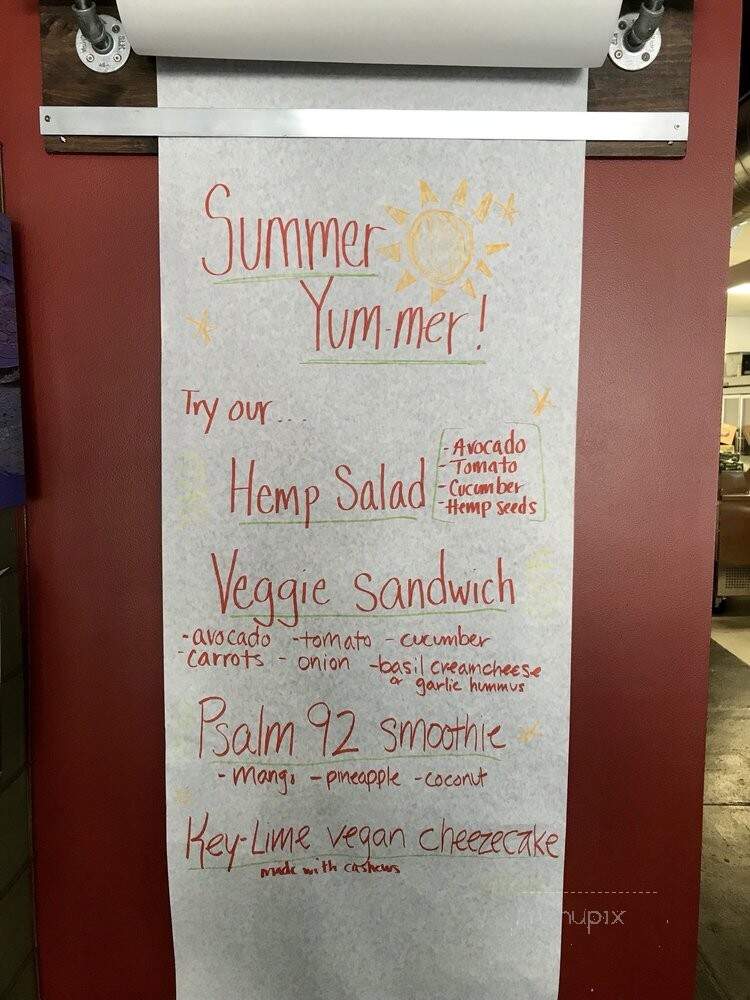 Summer
Yum-mer!
Try our...
Hemp Salad
- Avocado
- Tomato
- Cucumber
- Hemp seeds
Veggie Sandwich
- avocado - tomato - cucumber
- carrots - onion - basil creamcheese
& garlic hummus
Psalm 92 smoothie
- mango - pineapple - coconut
Key-Lime vegan cheezecake
made with cashews